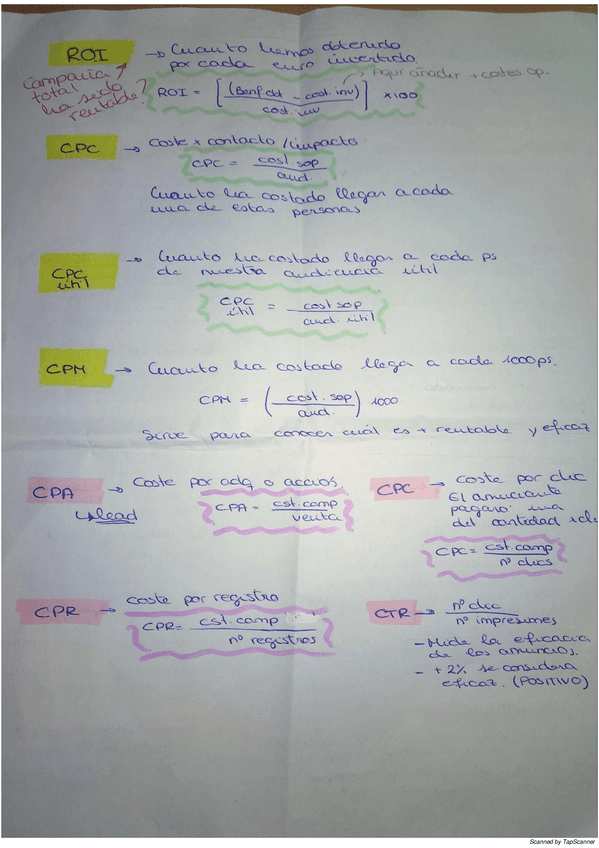 ROI → Cuanto hemos obtenido
por cada euro invertido.
Campaña total ha sido rentable?
Aquí añadir + costes op.
ROI = [(Benf obt - cost. inv) / cost. inv] x100
CPC → Coste x contacto / impacto
CPC = cost sop / aud.
Cuanto ha costado llegar a cada
una de estas personas
CPC útil → Cuanto ha costado llegar a cada ps
de nuestra audiencia útil
CPC útil = cost sop / aud. útil
CPM → Cuanto ha costado llega a cada 1000 ps.
CPM = (cost. sop / aud.) 1000
Sirve para conocer cuál es + rentable y eficaz
CPA → Coste por adq o acción
↳ lead
CPA = cst.camp / venta
CPC → coste por clic
El anunciante
pagará una
det. cantidad x cli
CPC = cst.camp / nº clics
CPR → coste por registro
CPR = cst.camp / nº registros
CTR → nº clic / nº impresiones
- Mide la eficacia
de los anuncios.
- + 2% se considera
eficaz. (POSITIVO)
Scanned by TapScanner